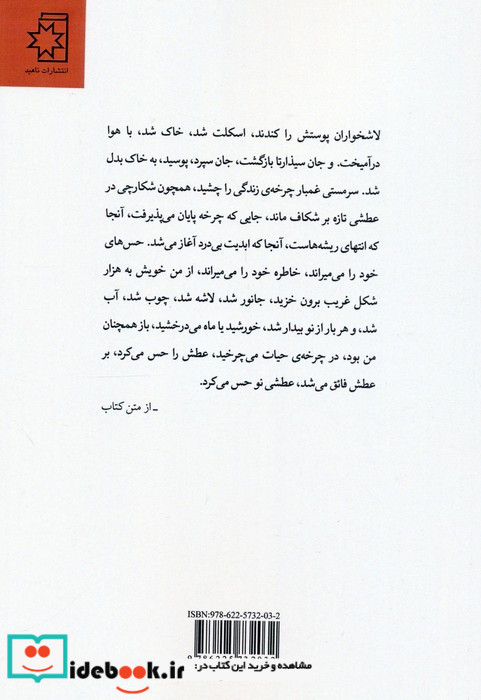 انتشارات ناهید
لاشخواران پوستش را کندند، اسکلت شد، خاک شد، با هوا
درآمیخت. و جان سیذارتا بازگشت، جان سپرد، پوسید، به خاک بدل
شد. سرمستی غمبار چرخه‌ی زندگی را چشید، همچون شکارچی در
عطشی تازه بر شکاف ماند، جایی که چرخه پایان می‌پذیرفت، آنجا
که انتهای ریشه‌هاست، آنجا که ابدیت بی‌درد آغاز می‌شد. حس‌های
خود را می‌میراند، خاطره خود را می‌میراند، از من خویش به هزار
شکل غریب برون خزید، جانور شد، لاشه شد، چوب شد، آب
شد، و هر بار از نو بیدار شد، خورشید یا ماه می‌درخشید، باز همچنان
من بود، در چرخه‌ی حیات می‌چرخید، عطش را حس می‌کرد، بر
عطش فائق می‌شد، عطشی نو حس می‌کرد.
ـ از متن کتاب
ISBN:978-622-5732-03-2
مشاهده و خرید این کتاب در:
idebook.ir